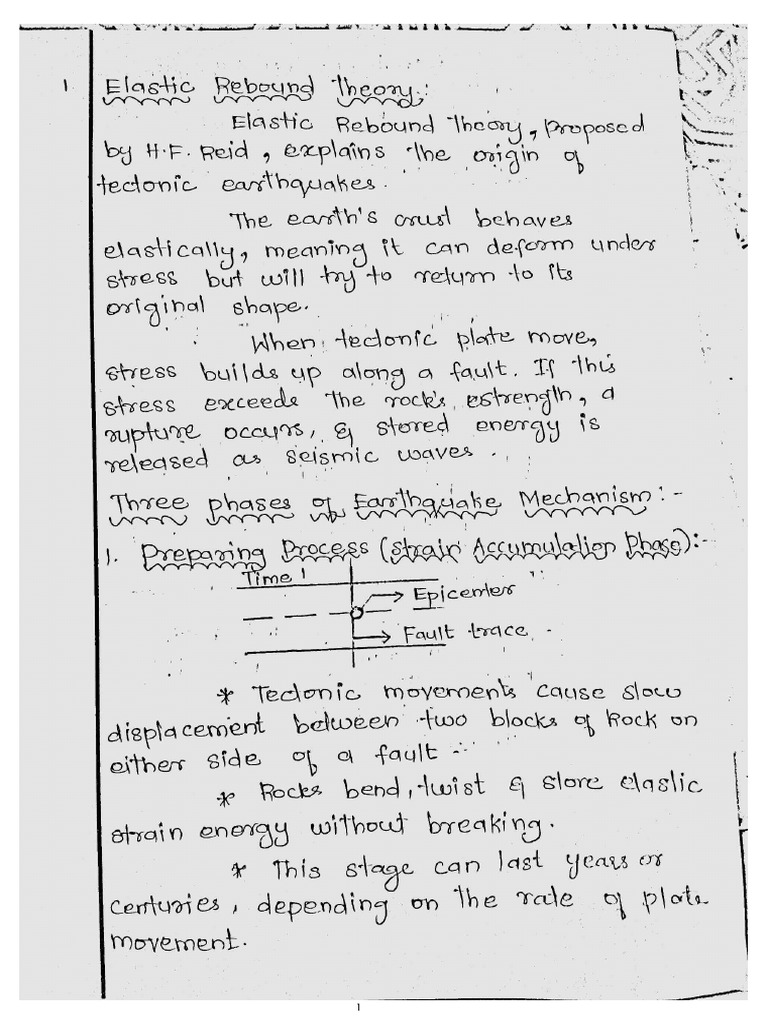 1 Elastic Rebound Theory:
Elastic Rebound Theory, proposed
by H.F. Reid, explains the origin of
tectonic earthquakes.
The earth's crust behaves
elastically, meaning it can deform under
stress but will try to return to its
original shape.
When tectonic plate move,
stress builds up along a fault. If this
stress exceeds the rock's estrength, a
rupture occurs, & stored energy is
released as seismic waves.
Three phases of Earthquake Mechanism:-
1. Preparing Process (Strain Accumulation Phase):-
Time 1
Epicenter
Fault trace
* Tectonic movements cause slow
displacement between two blocks of Rock on
either side of a fault
* Rocks bend, twist & store elastic
strain energy without breaking.
* This stage can last years or
centuries, depending on the rate of plate
movement.
1